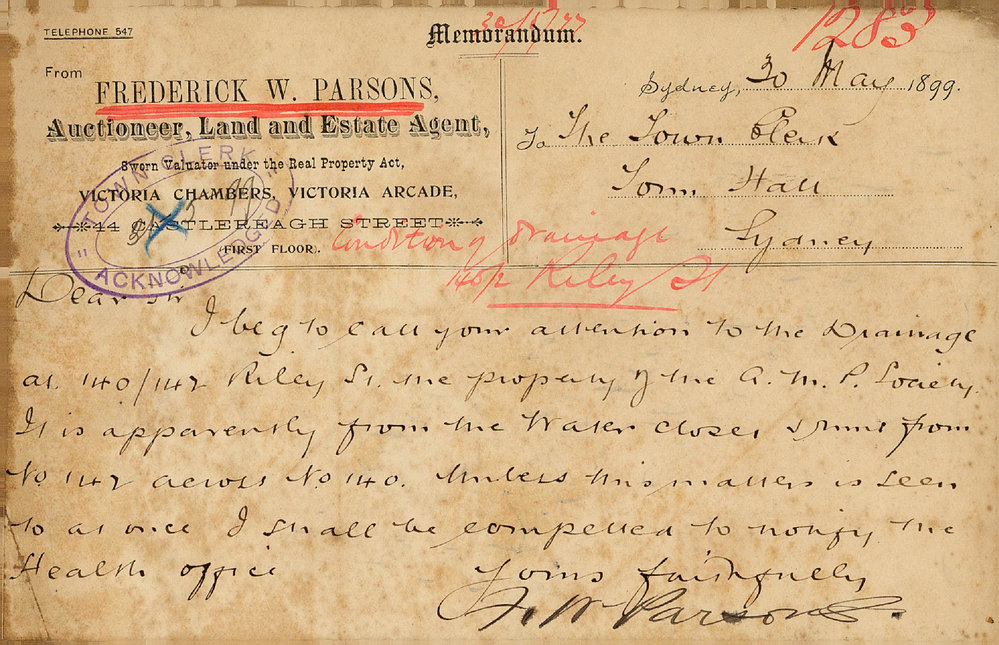 TELEPHONE 547
Memorandum.
1283
From
FREDERICK W. PARSONS,
Auctioneer, Land and Estate Agent,
Sworn Valuator under the Real Property Act,
VICTORIA CHAMBERS, VICTORIA ARCADE,
44 CASTLEREAGH STREET
(FIRST FLOOR).
TOWN CLERK
ACKNOWLEDGED
Sydney, 30 May 1899.
To The Town Clerk
Town Hall
Sydney
Condition of Drainage
Riley St
Dear Sir
I beg to call your attention to the Drainage
at 140/142 Riley St. the property of the A. M. P. Society.
It is apparently from the Water Closet & runs from
No 142 across No 140. Unless this matter is seen
to at once I shall be compelled to notify the
Health office
Yours faithfully
F. W. Parsons.